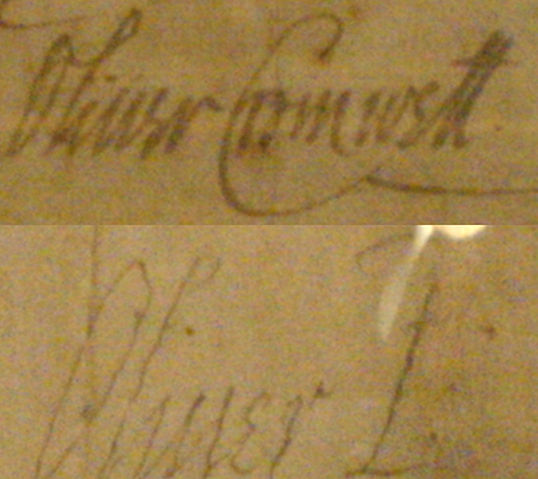 Oliuer Cromwell
Oliuer P